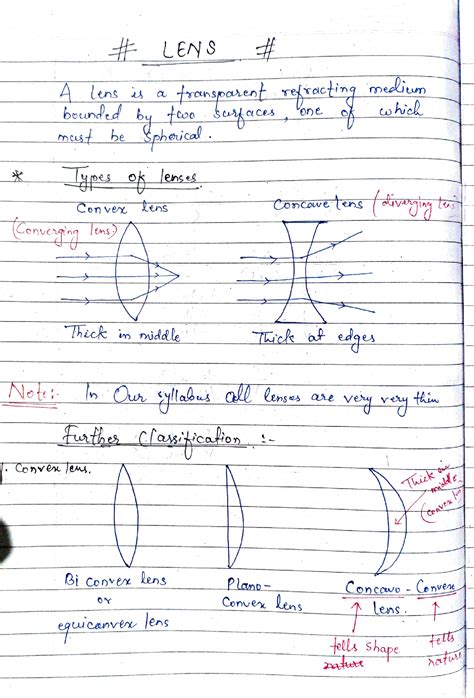 # LENS #
A lens is a transparent refracting medium
bounded by two surfaces, one of which
must be spherical.
* Types of lenses.
Convex lens Concave lens (diverging lens)
(Converging lens)
Thick in middle Thick at edges
Note:- In Our syllabus all lenses are very very thin
Further Classification :-
1. Convex lens.
Thick in
middle
(convex
Bi convex lens
or
equiconvex lens
Plano-
Convex lens
Concavo - Convex
lens.
tells shape
nature
tells
nature